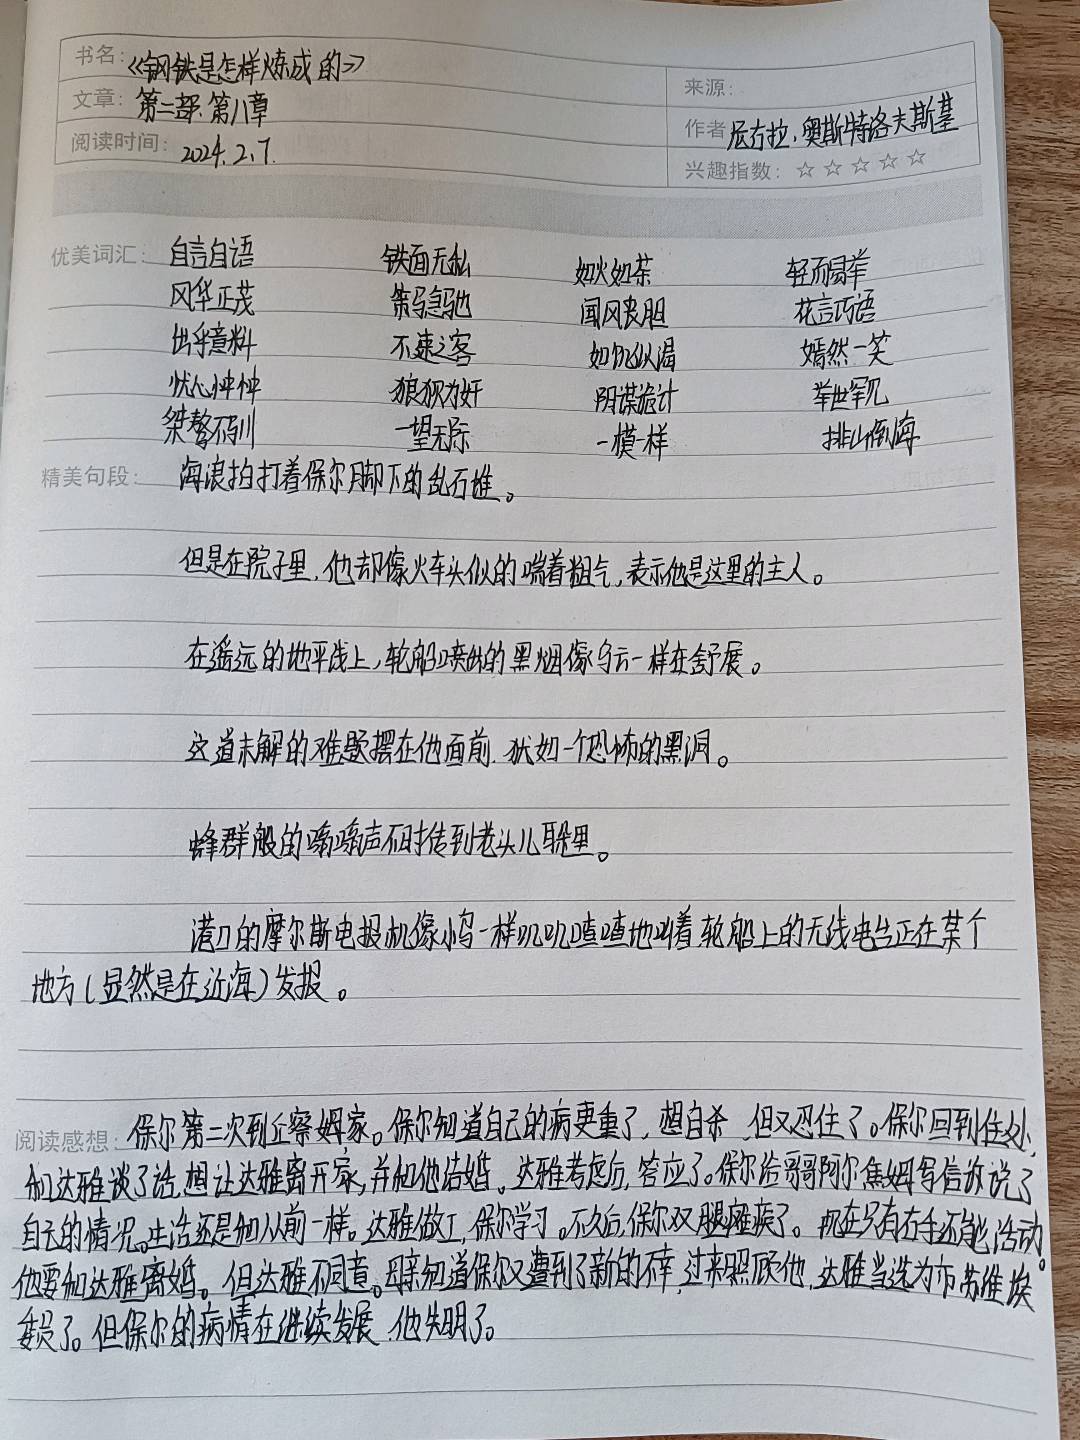 书名：《钢铁是怎样炼成的》
来源：
文章：第二部.第八章
作者 尼古拉.奥斯特洛夫斯基
阅读时间：2024.2.7.
兴趣指数：☆☆☆☆☆
优美词汇：自言自语 铁面无私 如火如荼 轻而易举
风华正茂 策马急驰 闻风丧胆 花言巧语
出乎意料 不速之客 如饥似渴 嫣然一笑
忧心忡忡 狼狈为奸 阴谋诡计 举世罕见
桀骜不驯 一望无际 一模一样 排山倒海
精美句段：海浪拍打着保尔脚下的乱石堆。
但是在院子里，他却像火车头似的喘着粗气，表示他是这里的主人。
在遥远的地平线上，轮船喷出的黑烟像乌云一样在舒展。
这道未解的难题摆在他面前.犹如一个恐怖的黑洞。
蜂群般的嗡嗡声不时传到老头儿耳朵里。
港口的摩尔斯电报机像小鸟一样叽叽喳喳地叫着，轮船上的无线电台正在某个
地方（显然是在近海）发报。
阅读感想：保尔第二次到丘察姆家。保尔知道自己的病更重了，想自杀，但又忍住了。保尔回到住处，
和达雅谈了话，想让达雅离开家，并和他结婚。达雅考虑后，答应了。保尔给哥哥阿尔焦姆写信诉说了
自己的情况。生活还是和从前一样。达雅做工，保尔学习。不久后，保尔双腿瘫痪了。现在只有右手还能活动。
他要和达雅离婚。但达雅不同意。母亲知道保尔又遭到了新的不幸，过来照顾他，达雅当选为市苏维埃
委员了。但保尔的病情在继续发展，他失明了。